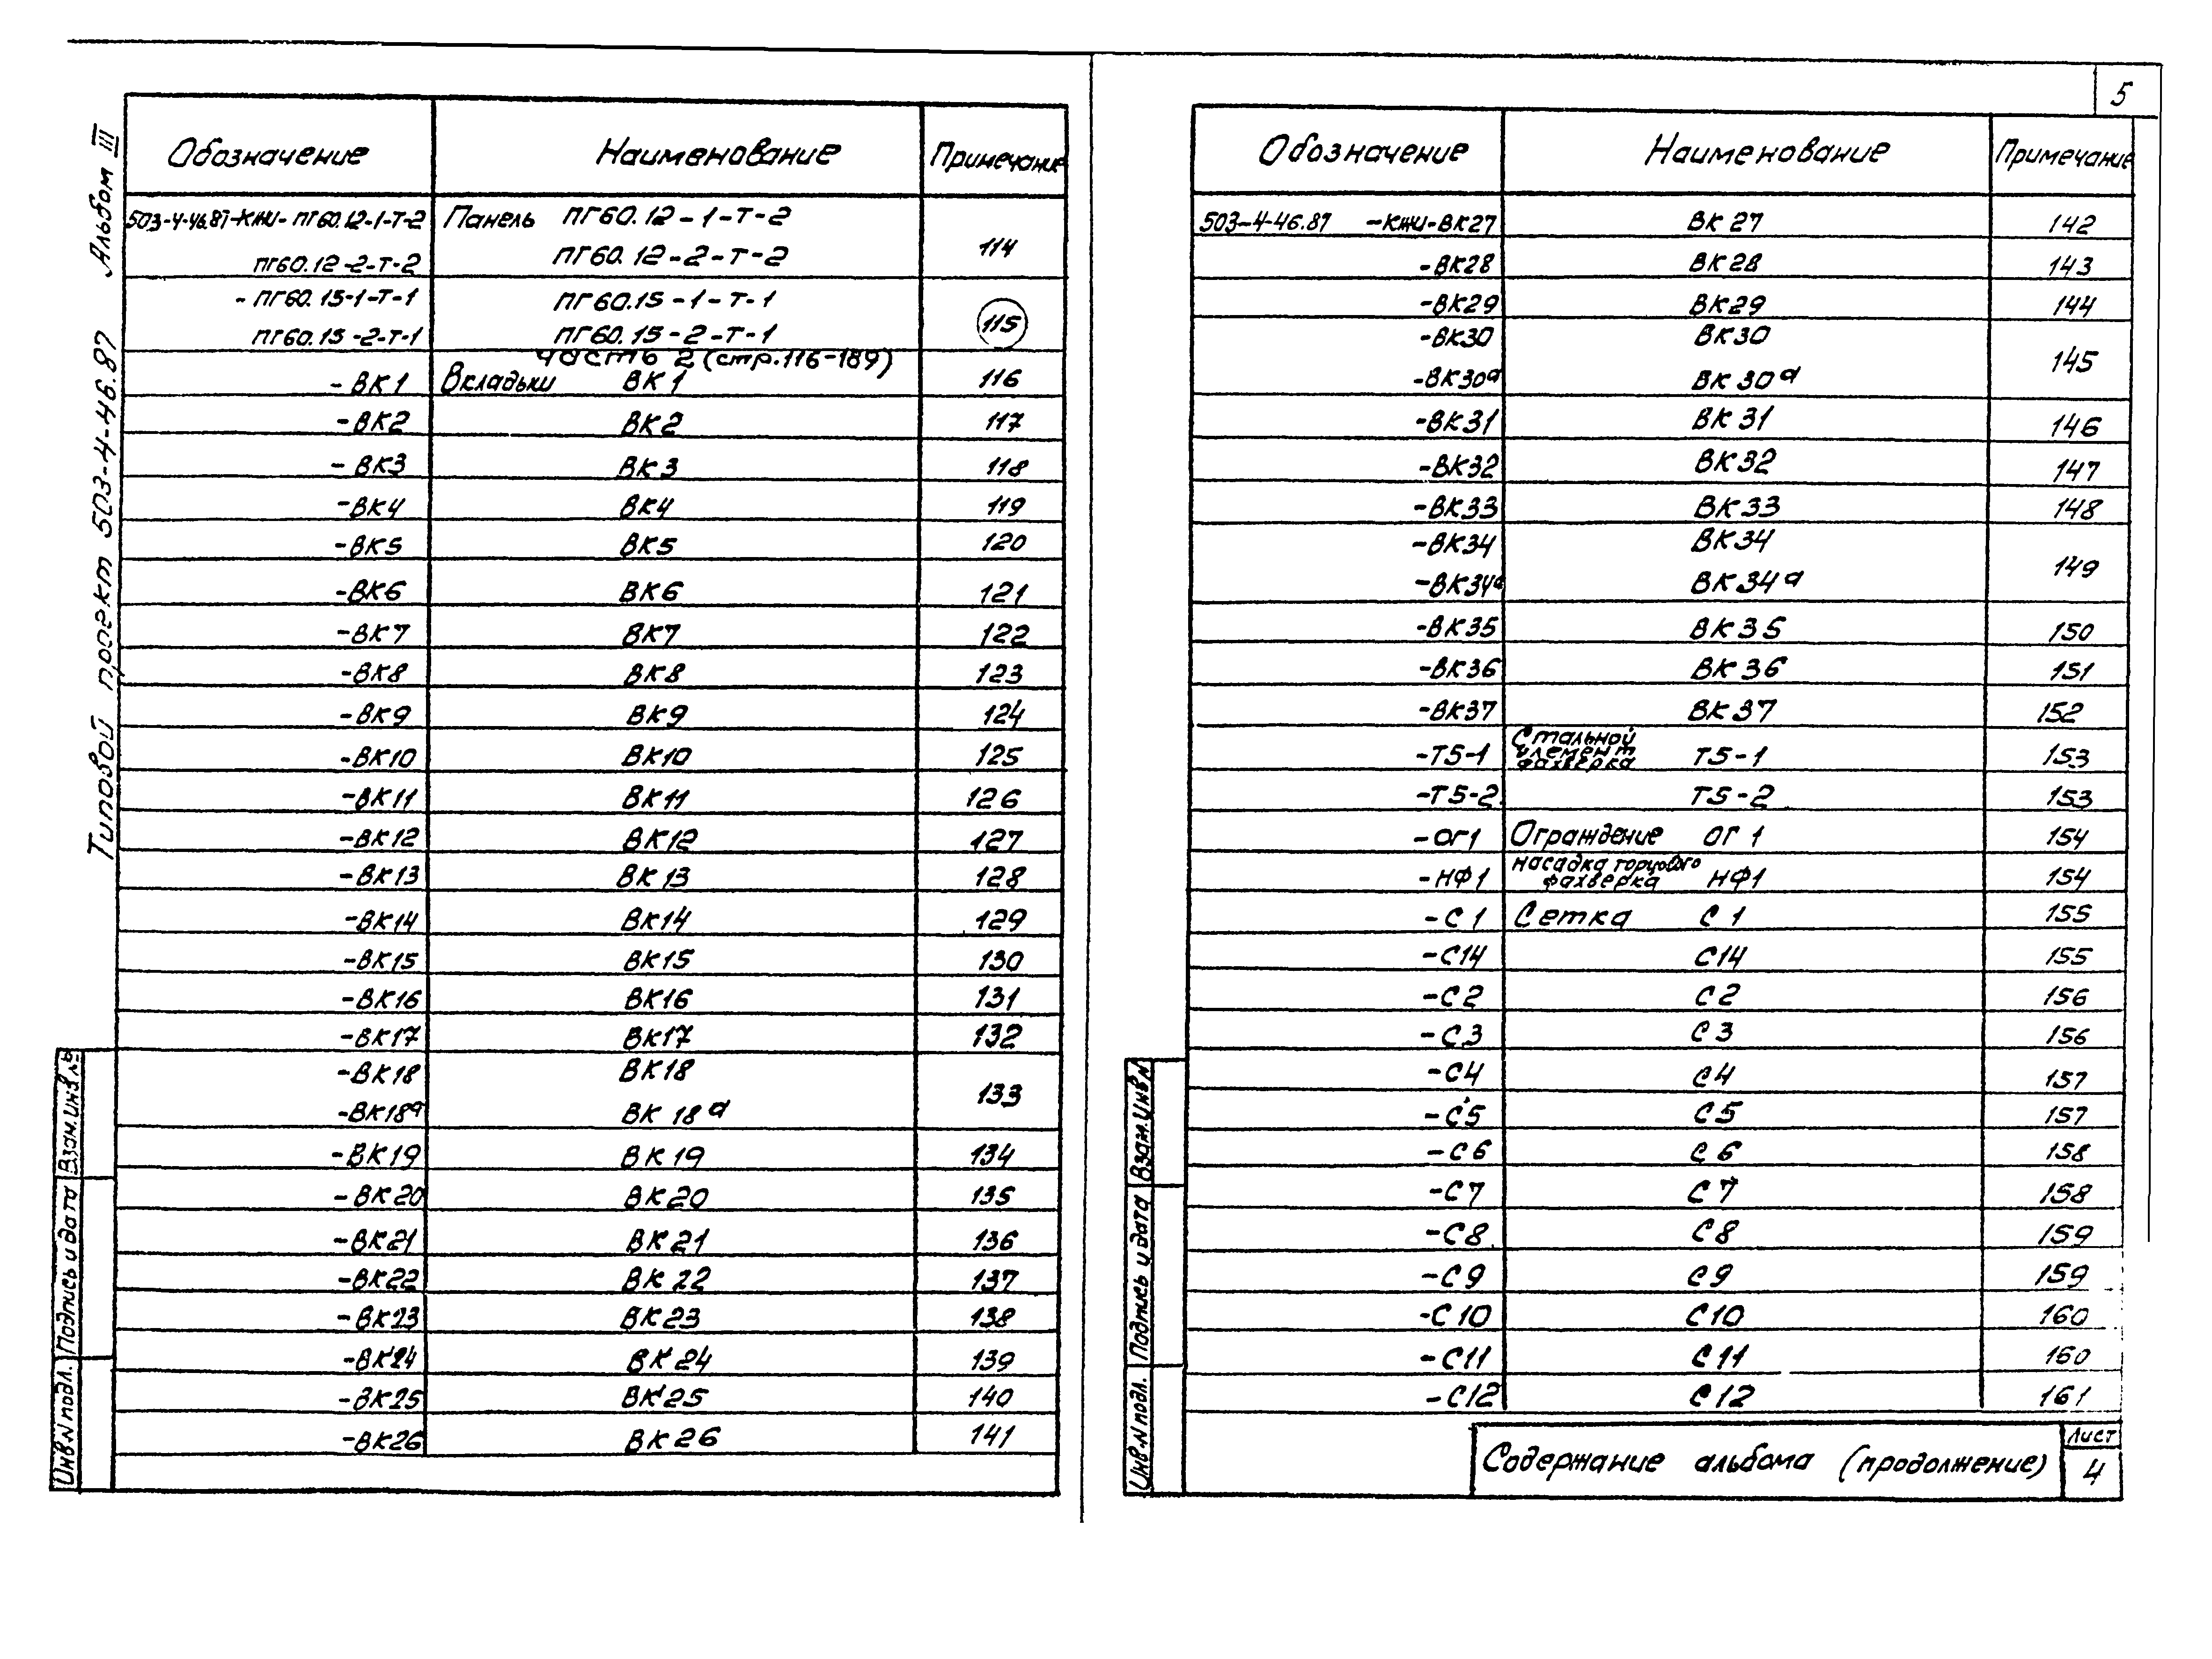 5
Типовой проект 503-4-46.87 Альбом III
Обозначение Наименование Примечание
503-4-46.87-КЖИ- ПГ60.12-1-Т-2 Панель ПГ60.12-1-Т-2
114
ПГ60.12-2-Т-2 ПГ60.12-2-Т-2
- ПГ60.15-1-Т-1 ПГ60.15-1-Т-1
115
ПГ60.15-2-Т-1 ПГ60.15-2-Т-1
часть 2 (стр.116-189)
-ВК1 Вкладыш ВК1 116
-ВК2 ВК2 117
-ВК3 ВК3 118
-ВК4 ВК4 119
-ВК5 ВК5 120
-ВК6 ВК6 121
-ВК7 ВК7 122
-ВК8 ВК8 123
-ВК9 ВК9 124
-ВК10 ВК10 125
-ВК11 ВК11 126
-ВК12 ВК12 127
-ВК13 ВК13 128
-ВК14 ВК14 129
-ВК15 ВК15 130
-ВК16 ВК16 131
-ВК17 ВК17 132
-ВК18 ВК18
133
-ВК18а ВК18а
-ВК19 ВК19 134
-ВК20 ВК20 135
-ВК21 ВК21 136
-ВК22 ВК22 137
-ВК23 ВК23 138
-ВК24 ВК24 139
-ВК25 ВК25 140
-ВК26 ВК26 141
Инв.N подл. Подпись и дата Взам.инв.№
Обозначение Наименование Примечание
503-4-46.87 -КЖИ-ВК27 ВК27 142
-ВК28 ВК28 143
-ВК29 ВК29 144
-ВК30 ВК30
145
-ВК30а ВК30а
-ВК31 ВК31 146
-ВК32 ВК32 147
-ВК33 ВК33 148
-ВК34 ВК34
149
-ВК34а ВК34а
-ВК35 ВК35 150
-ВК36 ВК36 151
-ВК37 ВК37 152
Стальной
элемент
-Т5-1 фахверка Т5-1 153
-Т5-2 Т5-2 153
-ОГ1 Ограждение ОГ1 154
насадка торцового
-НФ1 фахверка НФ1 154
-С1 Сетка С1 155
-С14 С14 155
-С2 С2 156
-С3 С3 156
-С4 С4 157
-С5 С5 157
-С6 С6 158
-С7 С7 158
-С8 С8 159
-С9 С9 159
-С10 С10 160
-С11 С11 160
-С12 С12 161
Инв.N подл. Подпись и дата Взам.Инв.N
Содержание альбома (продолжение)
Лист
4